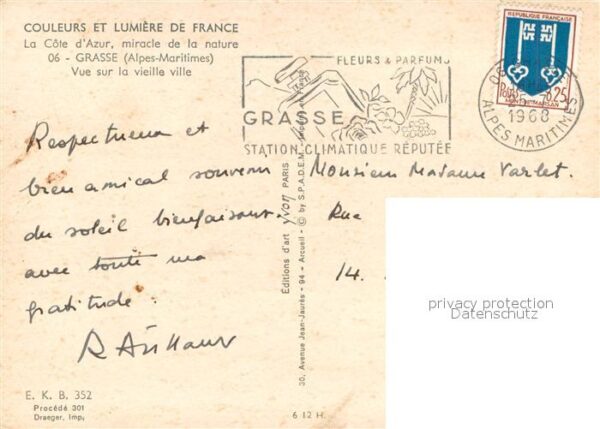 COULEURS ET LUMIÈRE DE FRANCE
La Côte d'Azur, miracle de la nature
06 - GRASSE (Alpes-Maritimes)
Vue sur la vieille ville
FLEURS & PARFUMS
GRASSE
STATION CLIMATIQUE RÉPUTÉE
REPUBLIQUE FRANÇAISE
0,25
MONT-DE-MARSAN
1968
ALPES MARITIMES
Respectueux et
bien amical souvenir
du soleil bienfaisant.
avec toute ma
gratitude.
Monsieur Madame Varlet.
Rue
14.
Editions d'art yvon PARIS
30, Avenue Jean-Jaurès - 94 - Arcueil - © by S.P.A.D.E.M.
privacy protection
Datenschutz
E. K. B. 352
Procédé 301
Draeger, Imp,
6 12 H.